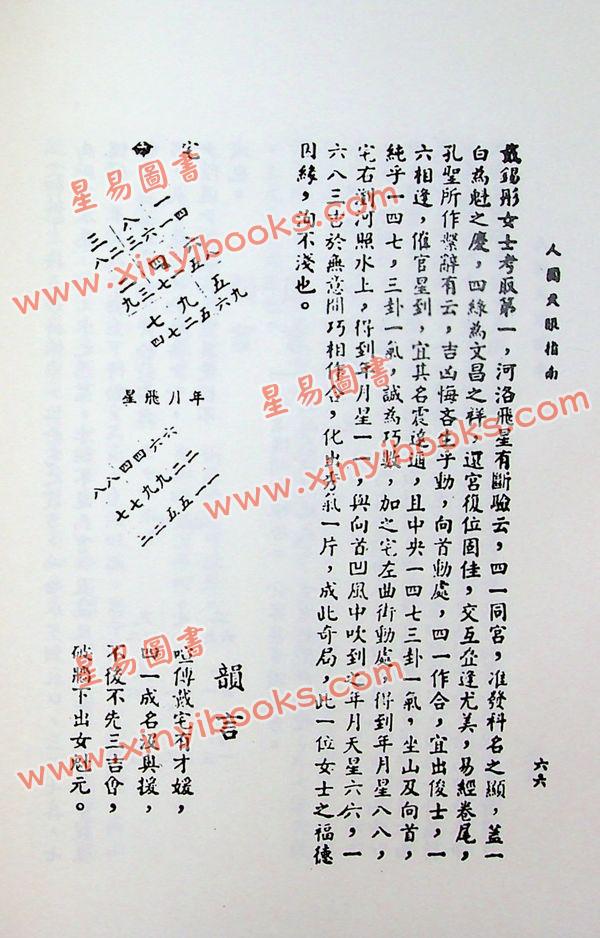 人間天眼指南
六六
戴錫彤女士考取第一，河洛飛星有斷驗云，四一同宮，准發科名之顯，蓋一
白為魁之慶，四綠為文昌之祥，還宮復位固佳，交互叠逢尤美，易經卷尾，
孔聖所作繫辭有云，吉凶悔吝生乎動，向首動處，四一作合，宜出俊士，一
六相逢，催官星到，宜其名震遐邇，且中央一四七三卦一氣，坐山及向首，
純乎一四七，三卦一氣，誠為巧數，加之宅左曲街動處，得到年月星八八，
宅右對河照水上，得到年月星一一，與向首凹風中吹到之年月天星六六，一
六八三吉於無意間巧相作合，化出秀氣一片，成此奇局，此一位女士之福德
因緣，洵不淺也。
宅命
年月飛星
八八四四六六
七七九九二二
二二五五一一
韻言
喧傳戴宅有才媛，
四一成名沒與援，
不後不先三吉會，
破牆下出女魁元。
星易圖書
www.xinyibooks.com
星易圖書
www.xinyibooks.com
星易圖書
www.xinyibooks.com